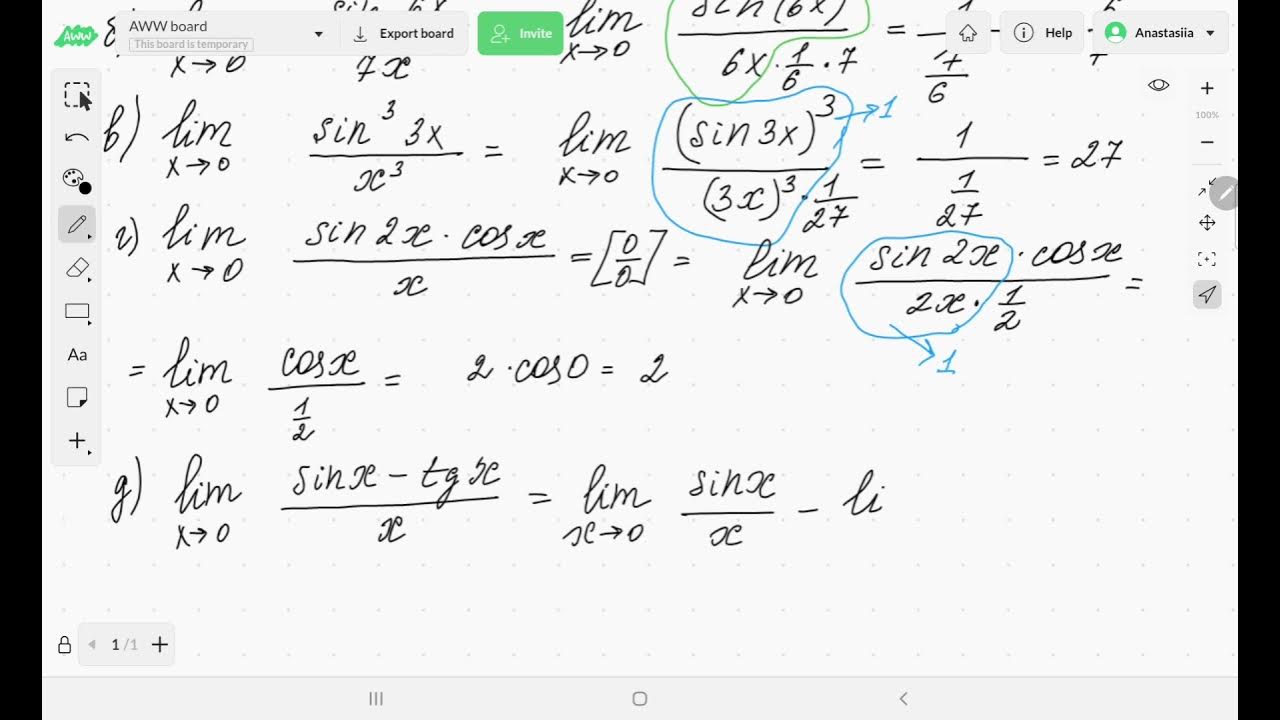 AWW board
This board is temporary
Export board
Invite
Help
Anastasiia
AWW
lim x→0 7x = lim x→0 sin(6x) / (6x · 1/6 · 7) = 1 / (7/6)
100%
в) lim x→0 sin³ 3x / x³ = lim x→0 (sin 3x)³ / ((3x)³ · 1/27) = 1 / (1/27) = 27
→ 1
г) lim x→0 sin 2x · cos x / x = [0/0] = lim x→0 sin 2x · cos x / (2x · 1/2) =
→ 1
= lim x→0 cos x / (1/2) = 2 · cos 0 = 2
Aa
д) lim x→0 (sin x − tg x) / x = lim x→0 sin x / x − li
1 /1